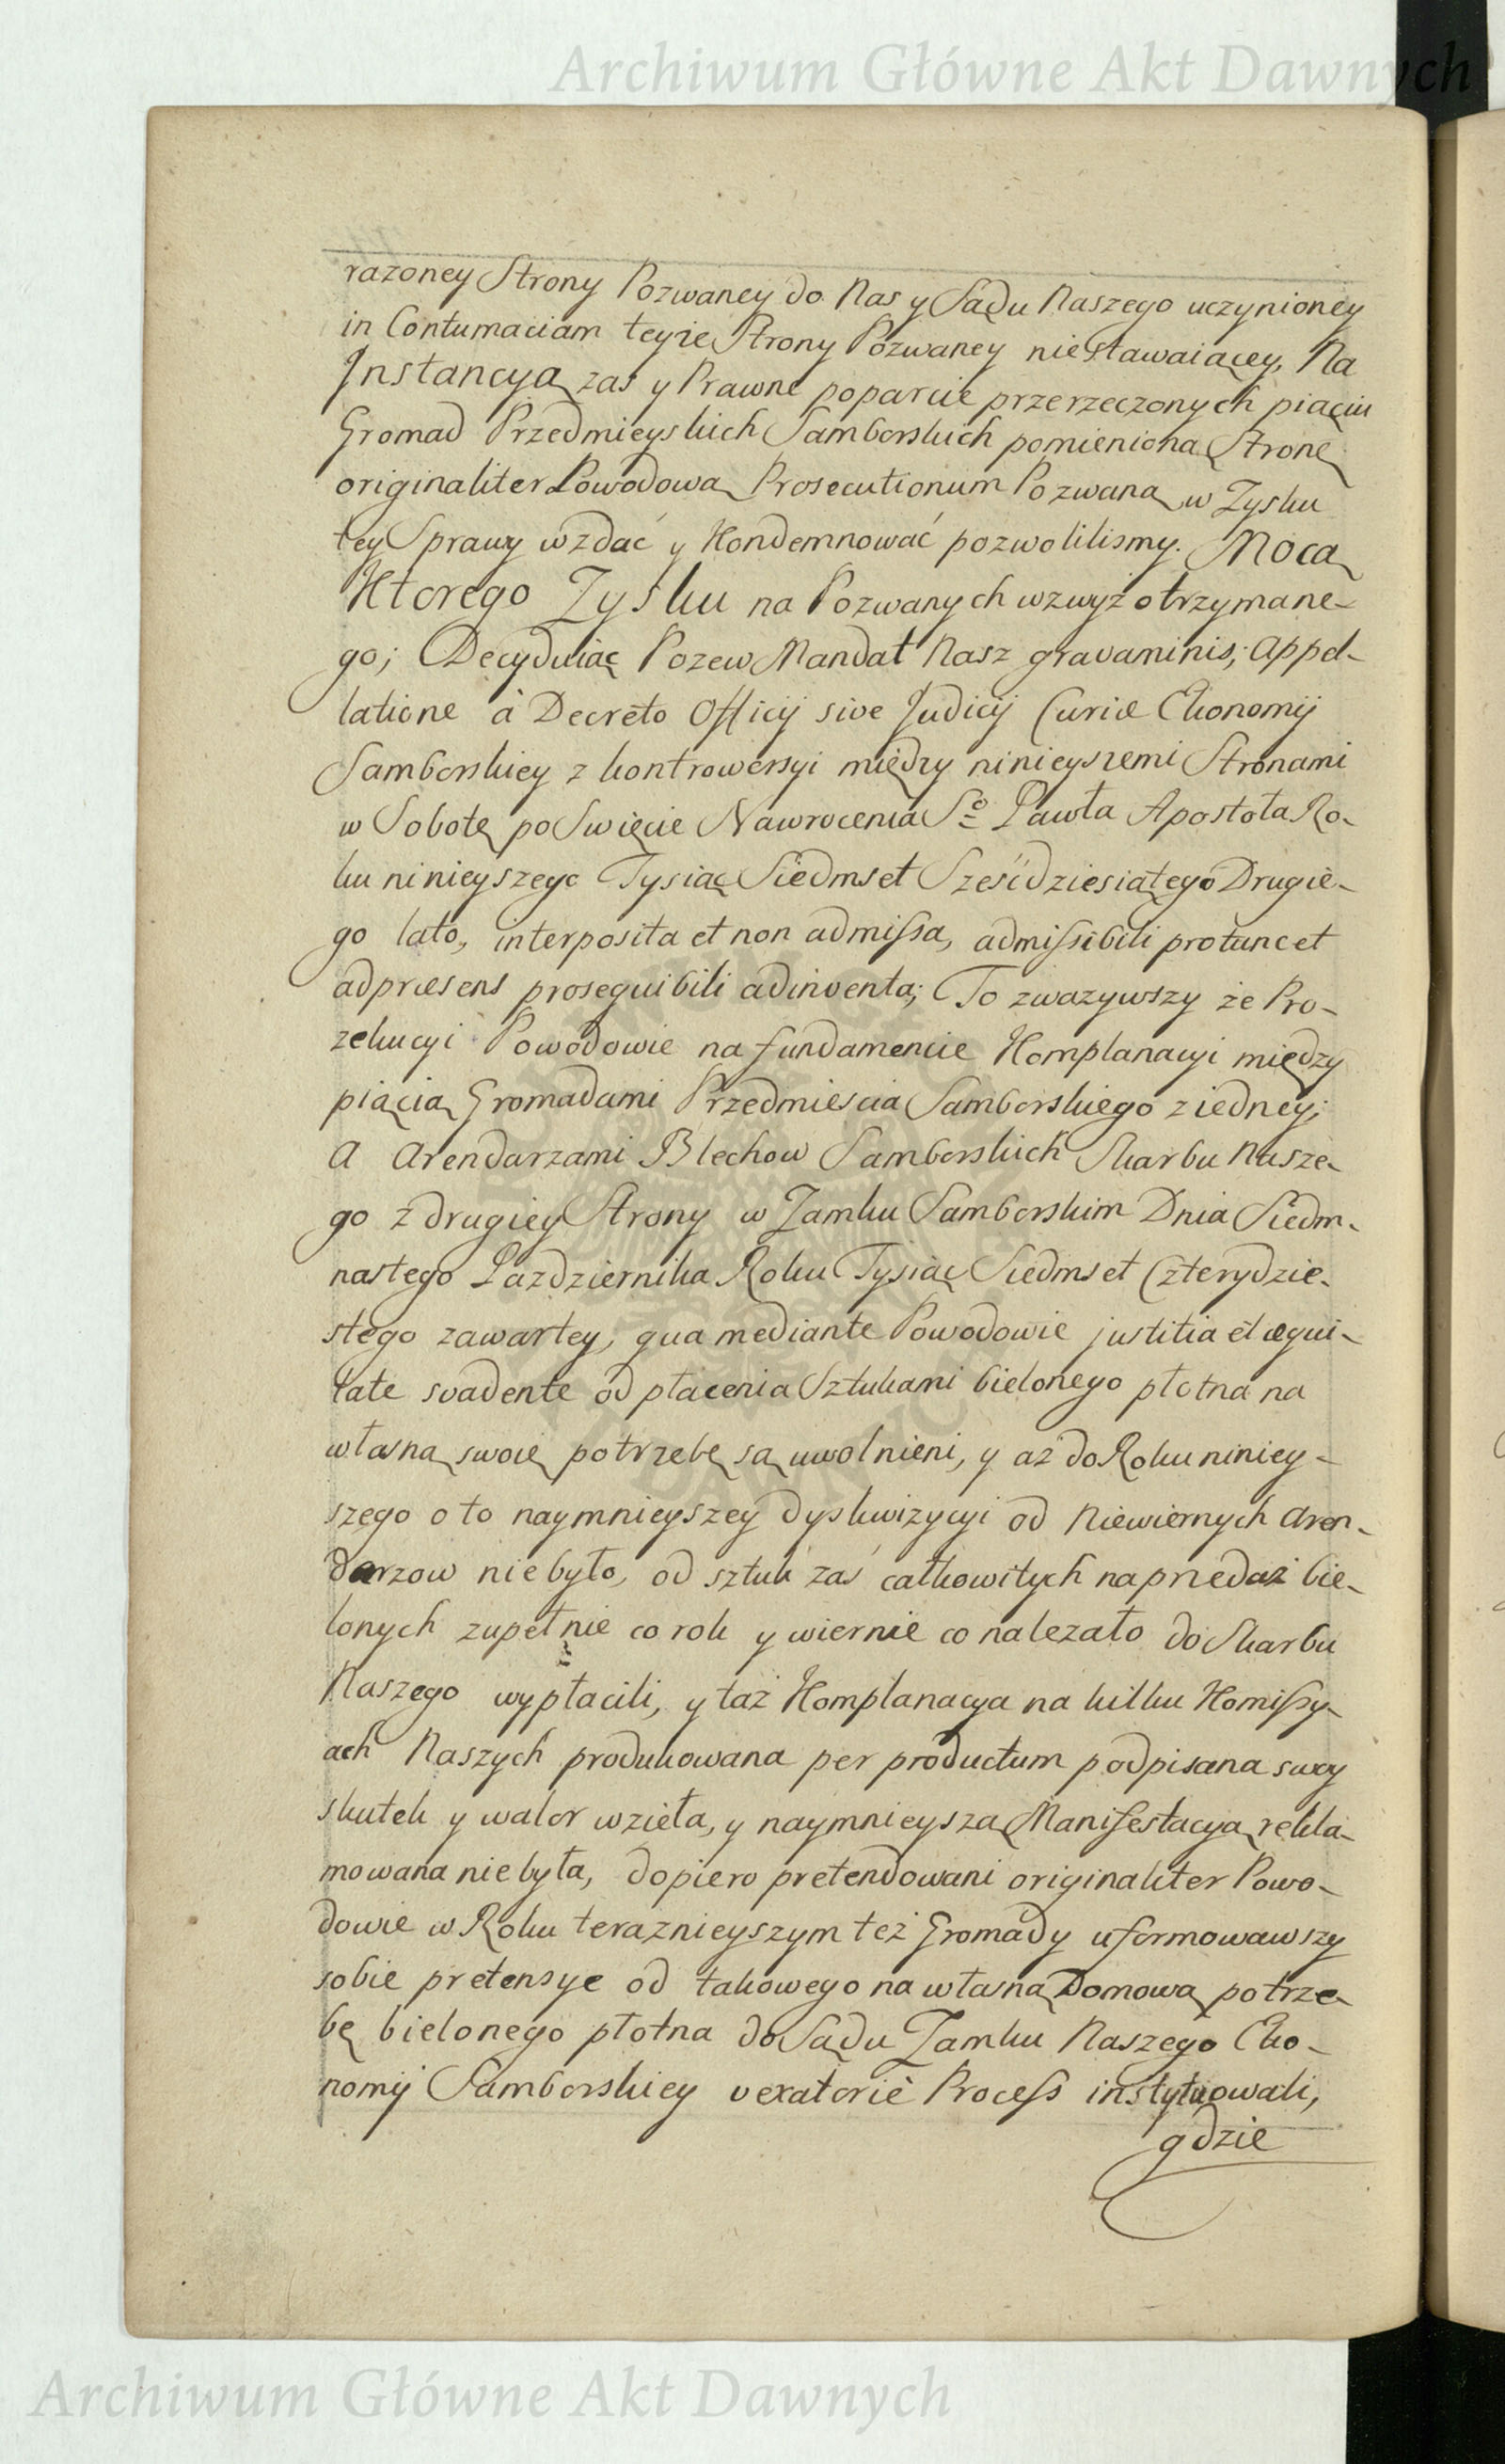 Archiwum Główne Akt Dawnych
razoney Strony Pozwaney do Nas y Sądu Naszego uczynioney
in Contumaciam teyże Strony Pozwaney niestawaiącey, Na
Instancyą zas y Prawne poparcie przerzeczonych piąciu
Gromad Przedmieyskich Samborskich pomienioną Stronę
originaliter Powodową Prosecutionum Pozwaną w Zysku
tey Sprawy wzdać y Kondemnować pozwolilismy. Mocą
Ktorego Zysku na Pozwanych wzwyż otrzymane-
go; Decyduiąc Pozew Mandat Nasz gravaminis, appel-
latione à Decreto Officij sive Judicij Curiæ Ekonomij
Samborskiey z kontrowersyi między ninieyszemi Stronami
w Sobotę po Swięcie Nawrocenia Sº Pawła Apostoła Ro-
ku ninieyszego Tysiąc Siedmset Sześćdziesiątego Drugie-
go lato, interposita et non admissa, admissibili protunc et
adpræsens prosequibili adinventa; To zwazywszy że Pro-
zekucyi Powodowie na fundamencie Komplanacyi między
piącią Gromadami Przedmieścia Samborskiego z iedney;
A Arendarzami Blechow Samborskich Skarbu Nasze-
go z drugiey Strony w Zamku Samborskim Dnia Siedm-
nastego Pazdziernika Roku Tysiąc Siedmset Czterydzie-
stego zawartey, qua mediante Powodowie justitia et æqui-
tate svadente od płacenia Sztukami bielonego płotna na
własną swoię potrzebę są uwolnieni, y aż do Roku niniey-
szego o to naymnieyszey dyskwizycyi od Niewiernych Aren-
darzow nie było, od sztuk zaś całkowitych na przedaż bie-
lonych zupełnie co rok y wiernie co nalezało do Skarbu
Naszego wypłacili, y taż Komplanacya na kilku Komissy-
ach Naszych produkowana per productum podpisana swoy
skutek y walor wzieła, y naymnieyszą Manifestacyą rekla-
mowana nie była, dopiero pretendowani originaliter Powo-
dowie w Roku teraznieyszym też Gromady uformowawszy
sobie pretensye od takowego na własną Domową potrze-
bę bielonego płotna do Sądu Zamku Naszego Eko-
nomij Samborskiey vexatoriè Process instytuowali,
gdzie
Archiwum Główne Akt Dawnych